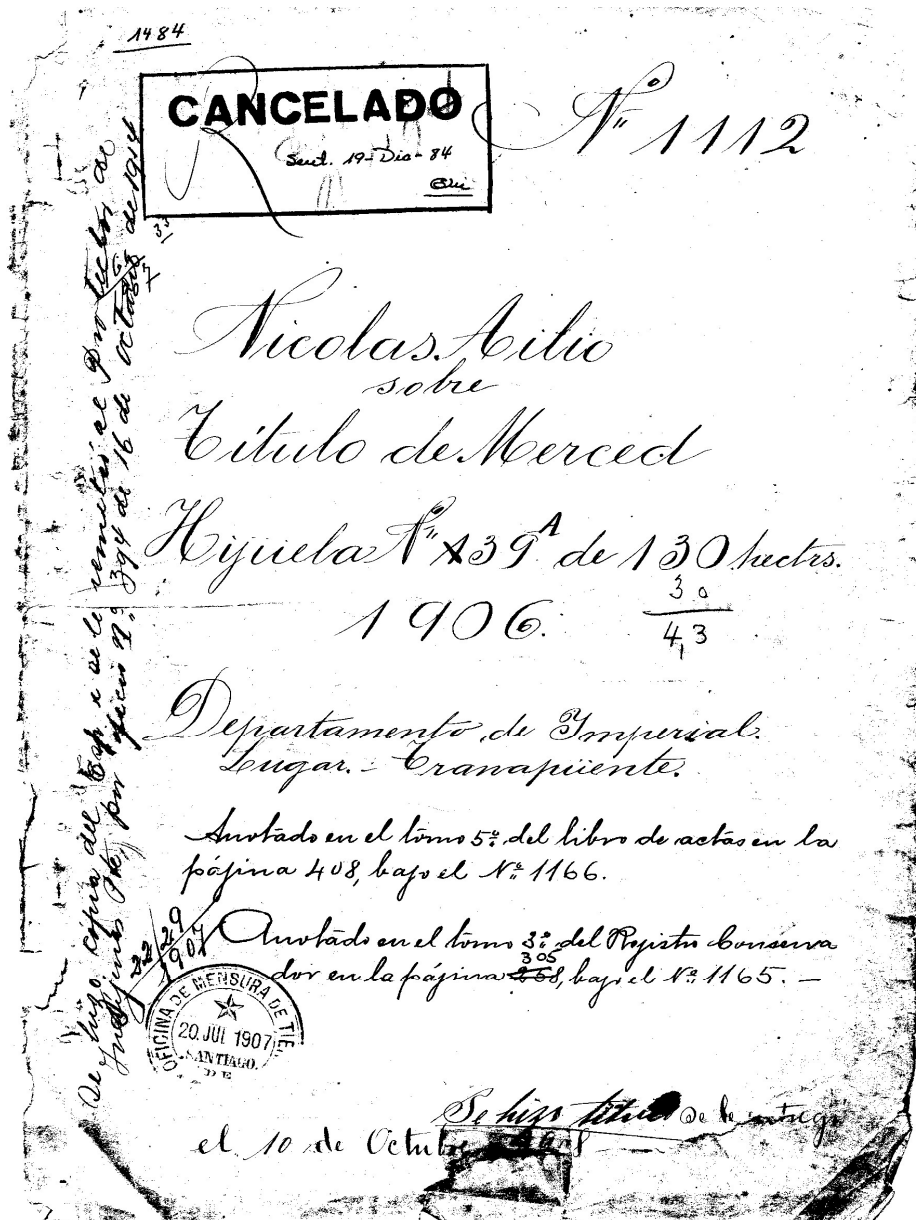 1484
CANCELADO
Sent. 19-Dic-84
Nº 1112
33
Nicolas Ailio
sobre
Título de Merced
Hijuela Nº 139 A de 130 hectrs.
30
1906.
4,3
Departamento de Imperial.
Lugar. - Tranapüente.
Anotado en el tomo 5º del libro de actas en la
pájina 408, bajo el Nº 1166.
Anotado en el tomo 3º del Rejistro Conserva
305
dor en la pájina 268, bajo el Nº 1165. —
OFICINA DE MENSURA DE TIE
20. JUL 1907
SANTIAGO.
Se hizo título Se le entregó
el 10 de Octubre
Se hizo copia del Esp. i se le remitió al Protector de
Indíjenas Pte, por oficio Nº 394 de 16 de octubre de 1914
29
1907